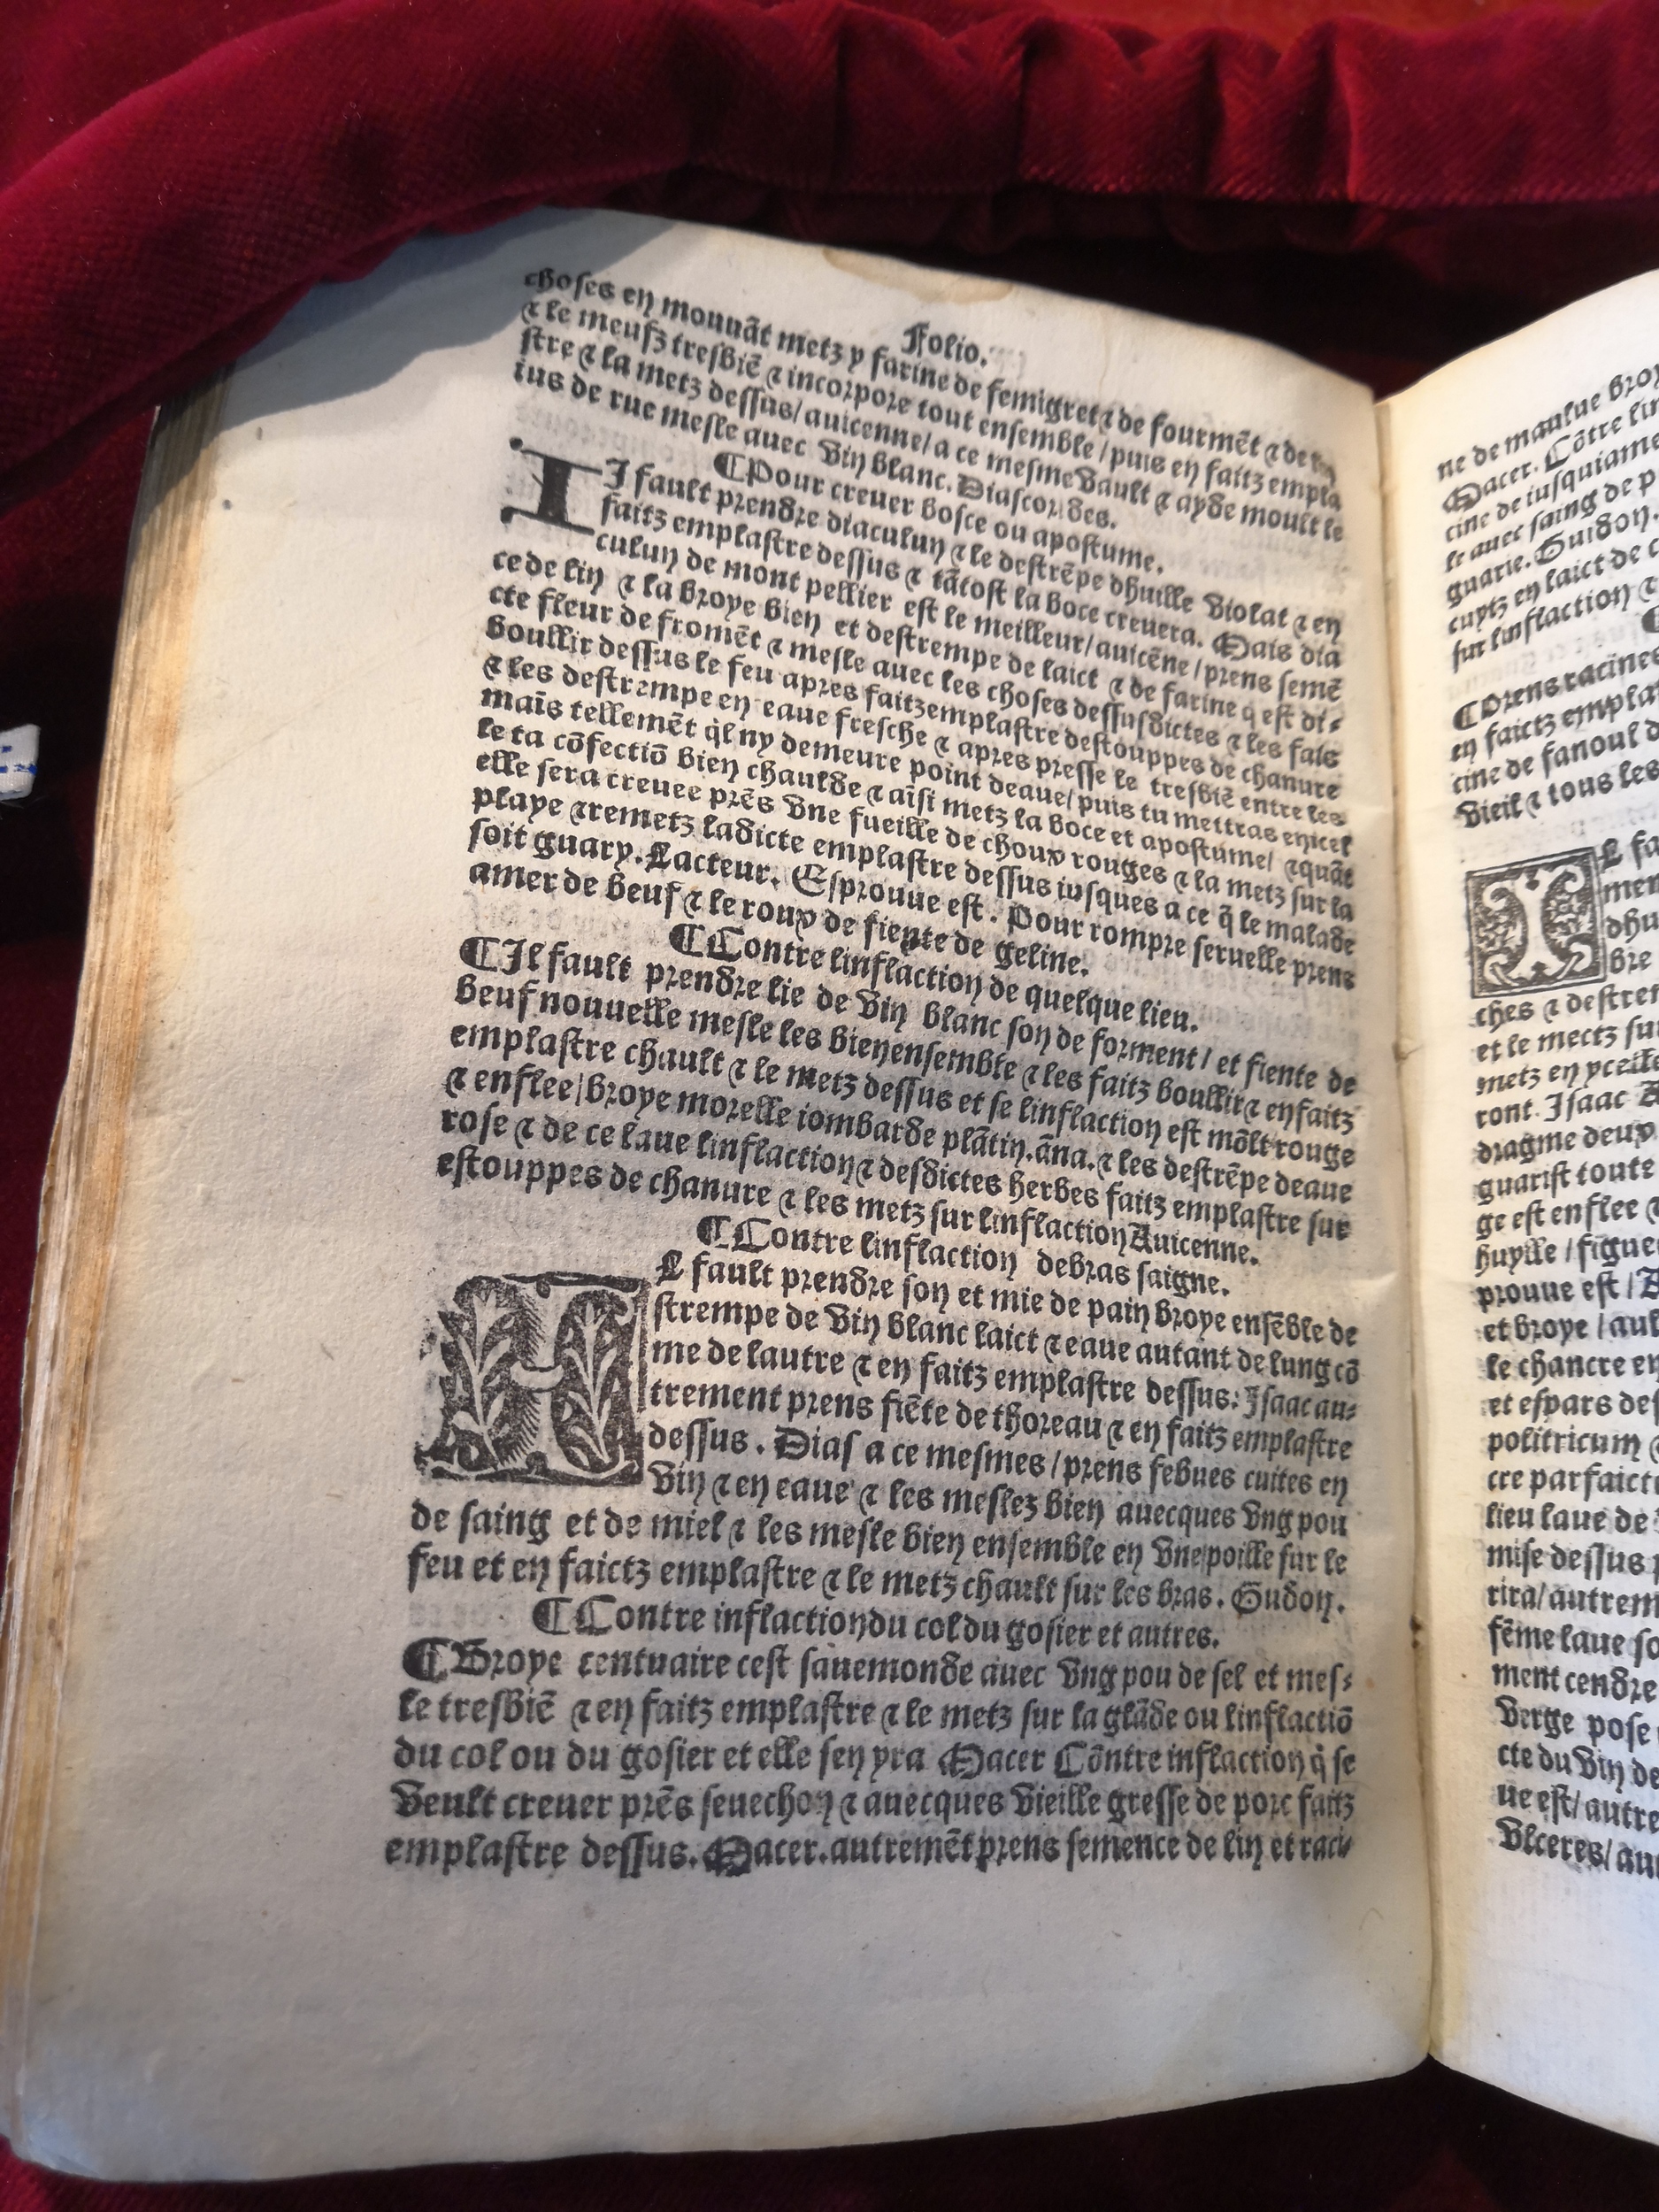 Folio.
choses en mouuāt metz y farine de femigret ⁊ de fourmēt ⁊ de
⁊ le meufz tresbiē ⁊ incorpore tout ensemble / puis en faitz empla
stre ⁊ la metz dessus / auicenne / a ce mesme vault ⁊ ayde moult le
ius de rue mesle auec vin blanc. Diascorides.
¶Pour creuer bosce ou apostume.
IJ fault prendre diaculun ⁊ le destrēpe dhuille violat ⁊ en
faitz emplastre dessus ⁊ tātost la boce creuera. Mais dia
culun de mont pellier est le meilleur / auicēne / prens semē
ce de lin ⁊ la broye bien et destrempe de laict ⁊ de farine q est di-
cte fleur de fromēt ⁊ mesle auec les choses dessusdictes ⁊ les fais
boullir dessus le feu apres faitz emplastre destouppes de chanure
⁊ les destrempe en eaue fresche ⁊ apres presse le tresbiē entre les
maīs tellemēt q̄l ny demeure point deaue / puis tu mettras en icel
le ta cōfectiō bien chaulde ⁊ aīsi metz la boce et apostume / ⁊ quāt
elle sera creuee prēs vne fueille de choux rouges ⁊ la metz sur la
playe ⁊ remetz ladicte emplastre dessus iusques a ce q̄ le malade
soit guary. Lacteur. Esprouue est. Pour rompre seruelle prens
amer de beuf ⁊ le roux de fiente de geline.
¶Contre linflaction de quelque lieu.
¶Il fault prendre lie de vin blanc son de forment / et fiente de
beuf nouuelle mesle les bien ensemble ⁊ les faitz boullir ⁊ en faitz
emplastre chault ⁊ le metz dessus et se linflaction est mōlt rouge
⁊ enflee / broye morelle iombarde plātin. āna. ⁊ les destrēpe deaue
rose ⁊ de ce laue linflaction ⁊ desdictes herbes faitz emplastre sur
estouppes de chanure ⁊ les metz sur linflaction Auicenne.
¶Contre linflaction debras saigne.
IL fault prendre son et mie de pain broye ensēble de
strempe de vin blanc laict ⁊ eaue autant de lung cō
me de lautre ⁊ en faitz emplastre dessus: Isaac au-
trement prens fiēte de thoreau ⁊ en faitz emplastre
dessus. Dias a ce mesmes / prens febues cuites en
vin ⁊ en eaue ⁊ les meslez bien auecques vng pou
de saing et de miel ⁊ les mesle bien ensemble en vne poille sur le
feu et en faictz emplastre ⁊ le metz chault sur les bras. Gudon.
¶Contre inflaction du col du gosier et autres.
¶Broye centuaire cest sauemonde auec vng pou de sel et mes-
le tresbiē ⁊ en faitz emplastre ⁊ le metz sur la glāde ou linflactiō
du col ou du gosier et elle sen yra Macer Cōntre inflaction q̄ se
veult creuer prēs seuechon ⁊ auecques vieille gresse de porc faitz
emplastre dessus. Macer. autremēt prens semence de lin et raci-
ne de maulue
Macer. Cōtre
cine de iusquiame
le auec saing de
guarie. Guidon.
cuytz en laict de
sur linflaction
¶Prens racines
en faictz
cine de fanoul
vieil ⁊ tous les
IL
dhu
bre
ches ⁊
et le mectz
metz en ycelle
ront. Isaac
dragme deux
guarist toute
ge est enflee
huylle /
prouue est /
et broye /
le chancre en
et espars
politricum
cre
lieu laue de
mise dessus
rira / autrem
fēme laue
ment cendre
verge pose
cte du vin de
ue est / autre
vlceres /